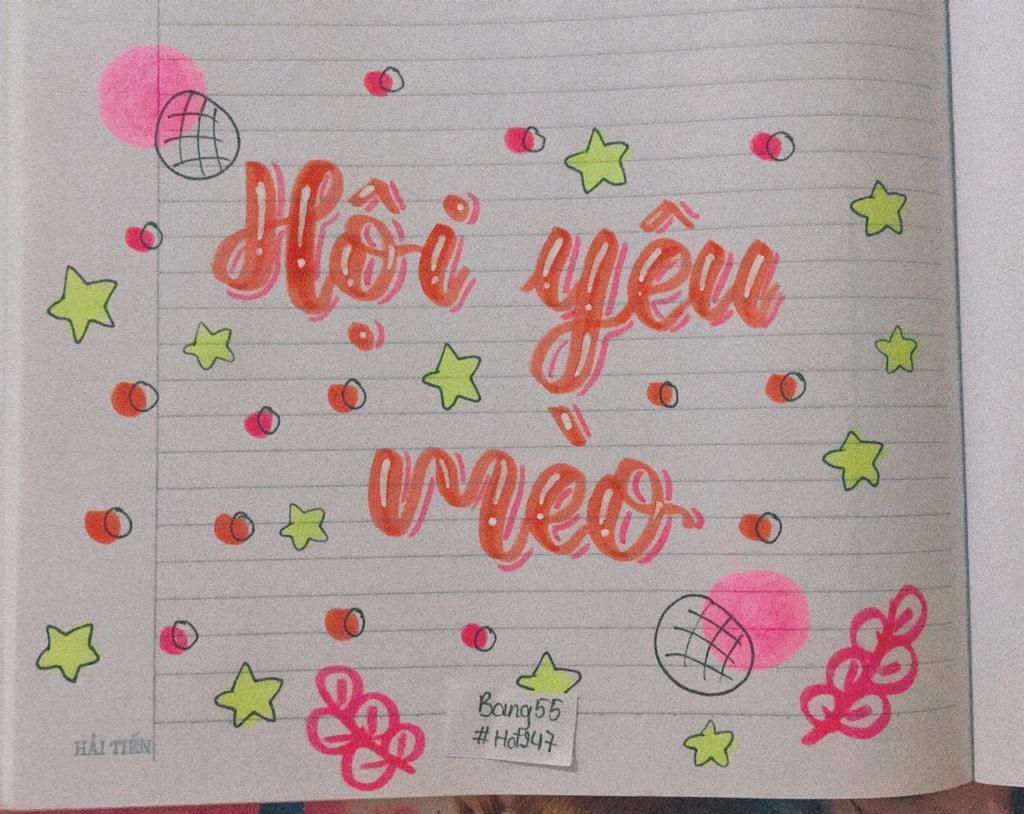 Hội yêu
mèo
Bang55
#Hot947
HẢI TIẾN